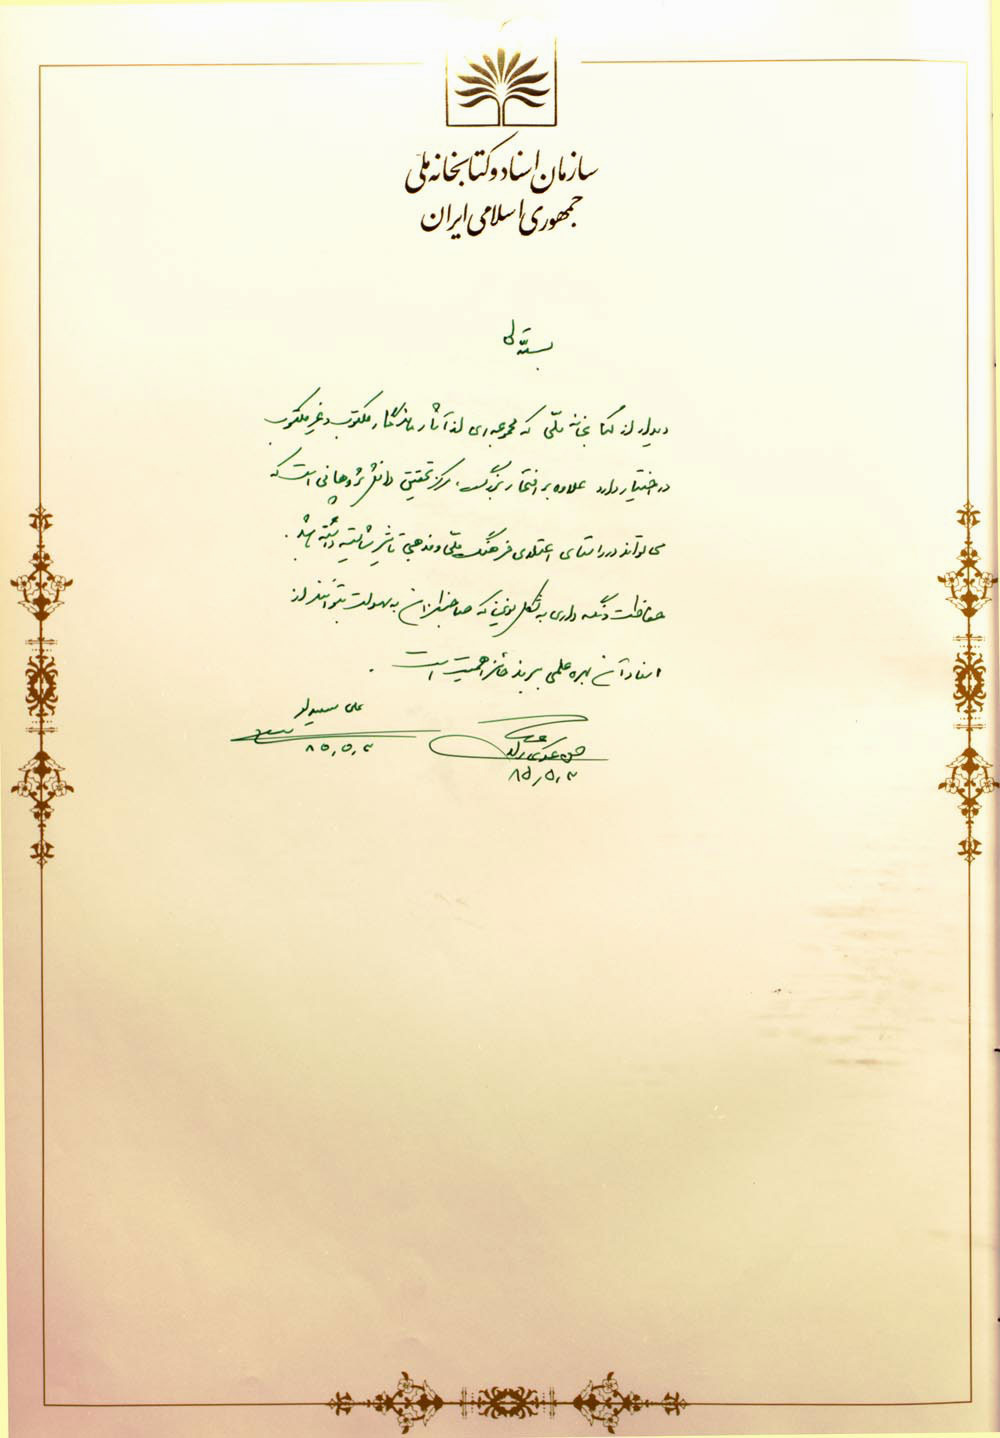 سازمان اسناد و کتابخانه ملی
جمهوری اسلامی ایران
بسمه تعالی
دیدار از کتابخانه ملّی که مجموعه‌ای از آثار ماندگار مکتوب و غیر مکتوب
در اختیار دارد علاوه بر افتخار بزرگ، مرکز تحقیق دانش پژوهانی است که
می‌تواند در راستای اعتلای فرهنگ ملّی و مذهبی تاثیر شایسته داشته باشد.
حفاظت و نگهداری به شکل نوین که صاحبنظران به سهولت بتوانند از
اسناد آن بهره علمی ببرند حائز اهمیت است.
علی سعیدلو
۸۵،۵،۳
۸۵٫۵٫۳